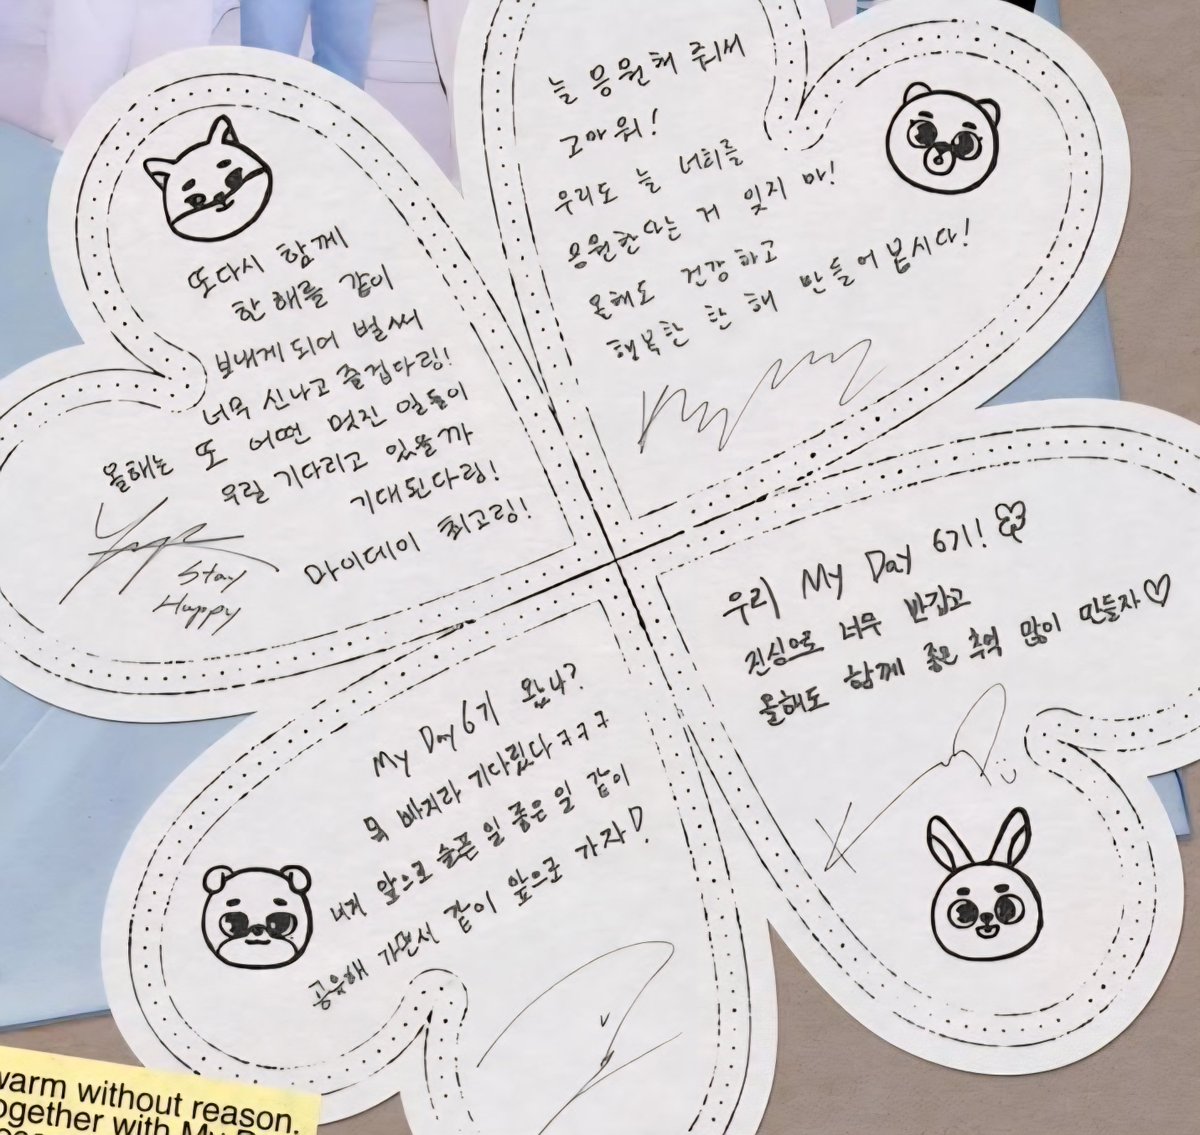 또다시 함께
한 해를 같이
보내게 되어 벌써
너무 신나고 즐겁다링!
올해는 또 어떤 멋진 일들이
우릴 기다리고 있을까
기대된다링!
마이데이 최고링!
Stay
Happy
늘 응원해 줘서
고마워!
우리도 늘 너희를
응원한다는 거 잊지 마!
올해도 건강하고
행복한 한 해 만들어 봅시다!
우리 My Day 6기!
진심으로 너무 반갑고
올해도 함께 좋은 추억 많이 만들자♡
My Day 6기 왔나?
목 빠지라 기다렸다 ㅋㅋㅋ
내게 앞으로 슬픈 일 좋은 일 같이
공유해 가면서 같이 앞으로 가자!
warm without reason.
ogether with My